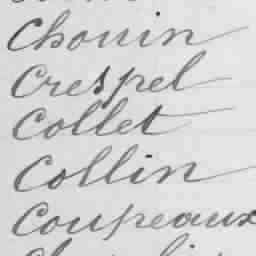 Chouin
Crespel
Collet
Collin
Coupeaux